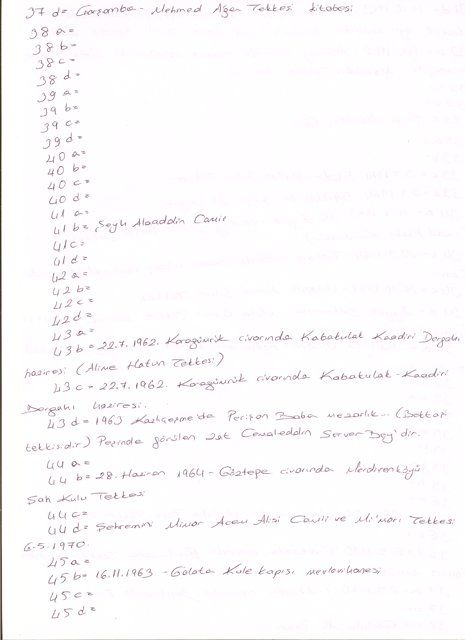 37 d= Çarşamba - Mehmed Ağa Tekkesi kitabesi
38 a=
38 b=
38 c=
38 d=
39 a=
39 b=
39 c=
39 d=
40 a=
40 b=
40 c=
40 d=
41 a=
41 b= Şeyh Alaaddin Camii
41 c=
41 d=
42 a=
42 b=
42 c=
42 d=
43 a=
43 b= 22.7.1962. Karagümrük civarında Kabakulak Kaadiri Dergahı
haziresi (Alime Hatun Tekkesi)
43 c= 22.7.1962. Karagümrük civarında Kabakulak-Kaadiri
Dergahı haziresi.
43 d= 1963 Kazlıçeşme'de Perişan Baba mezarlık... (Bektaşi
tekkesidir) Peşinde görülen zat Cemaleddin Server Bey'dir.
44 a=
44 b= 28. Haziran 1964 - Göztepe civarında Merdivenköyü
Şah Kulu Tekkesi
44 c=
44 d= Şehremini Mimar Acem Alisi Camii ve Mi'marı Tekkesi
6.5.1970.
45 a=
45 b= 16.11.1963 - Galata Kule kapısı mevlevihanesi
45 c=
45 d=